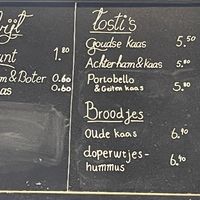 rijt
unt 1.80
m & Boter 0.60
aas 0.60
Tosti's
Goudse kaas 5.50
Achterham & kaas 5.80
Portobello
& Geiten kaas 5.80
Broodjes
Oude kaas 6.40
doperwtjes-
hummus 6.40